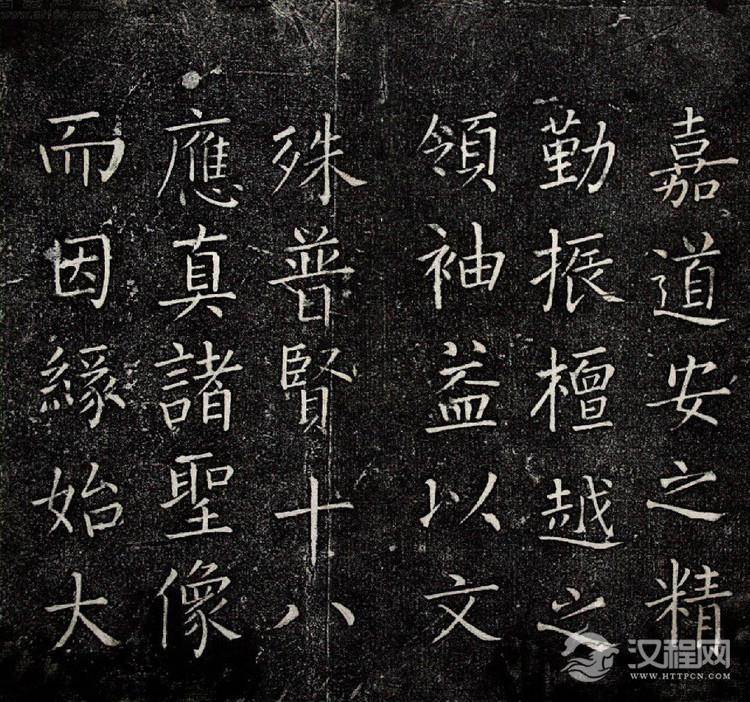 嘉道安之精
勤振檀越之
領袖益以文
殊普賢十八
應真諸聖像
而因緣始大
汉程网
WWW.HTTPCN.COM